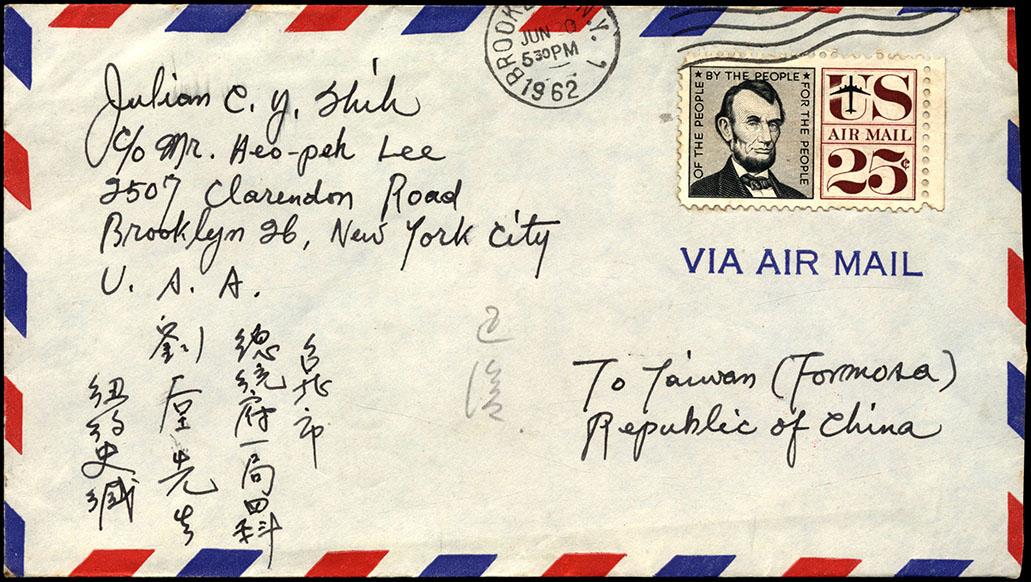 BROOKLYN, N.Y. 1
JUN
5 30 PM
1962
OF THE PEOPLE ★ BY THE PEOPLE ★ FOR THE PEOPLE
US
AIR MAIL
25¢
VIA AIR MAIL
Julian C. Y. Shih
c/o Mr. Heo-peh Lee
2507 Clarendon Road
Brooklyn 26, New York City
U. S. A.
To Taiwan (Formosa)
Republic of China
台北市
總統府一局四科
劉 先生
紐約史緘